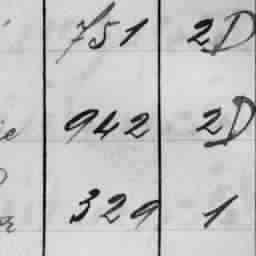 751 2D
942 2D
329 1